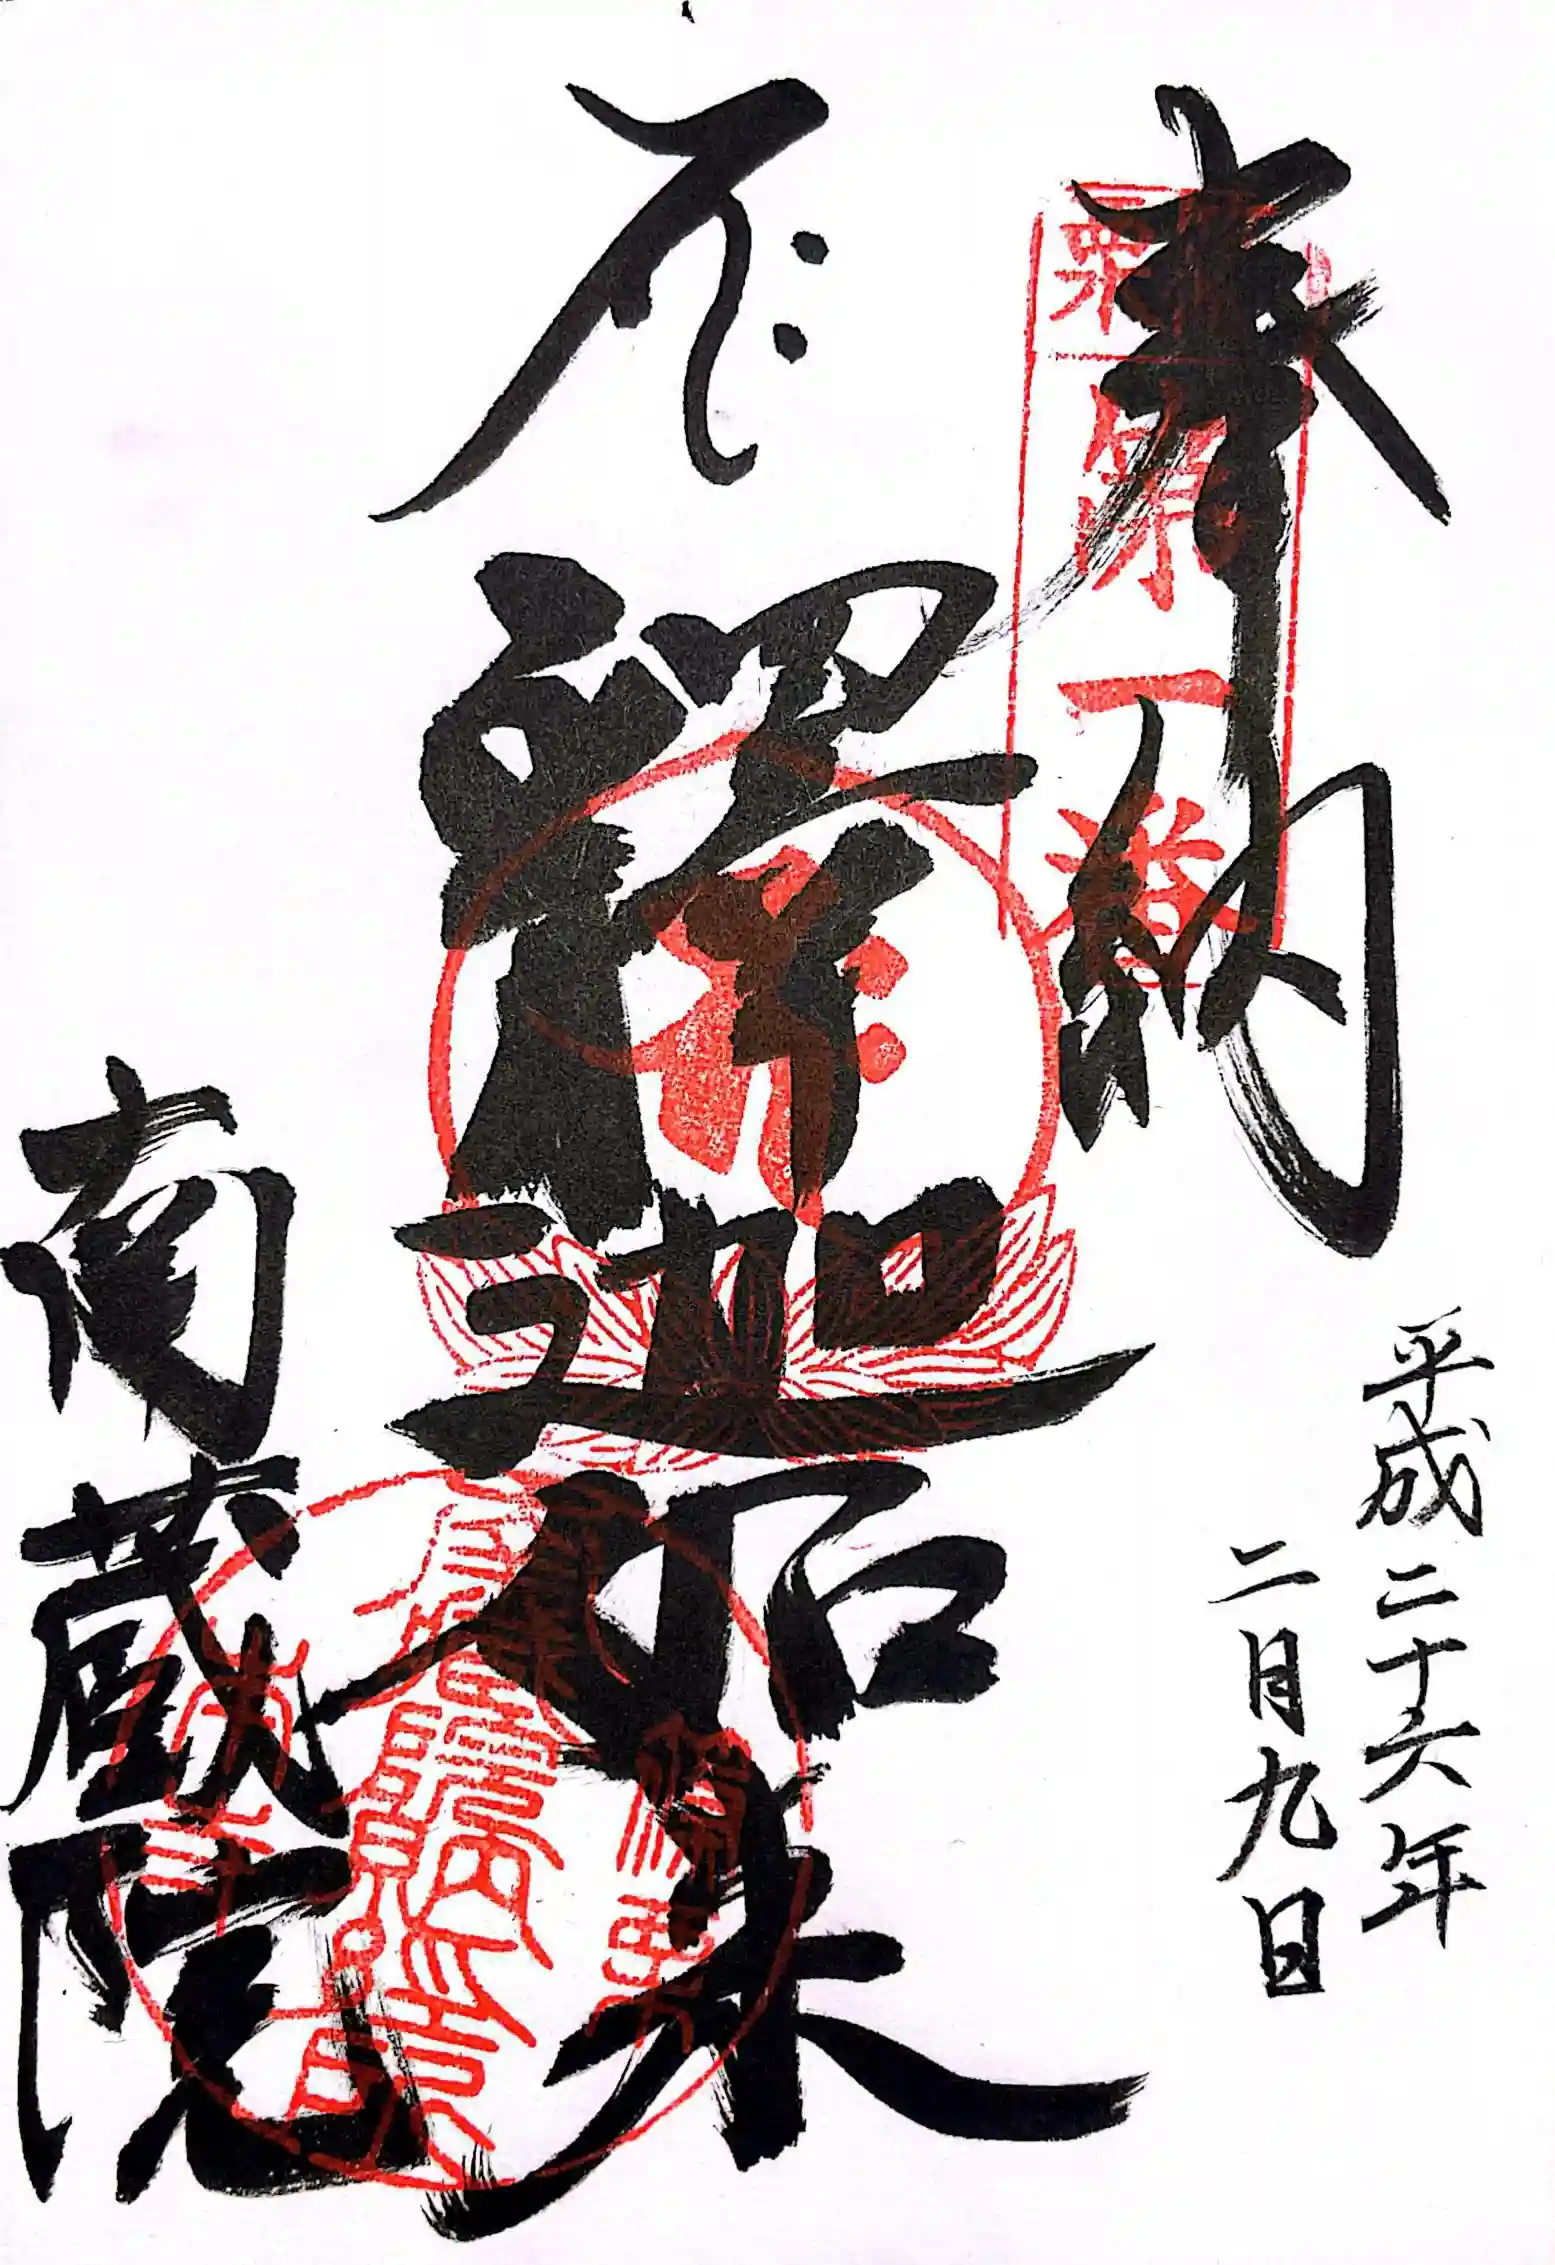 奉納
平成二十六年
二月九日
第一番
釋迦如来
南蔵院